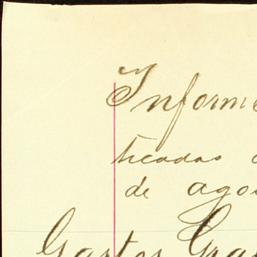 Informe
ticadas
de ago
Gastos Gra